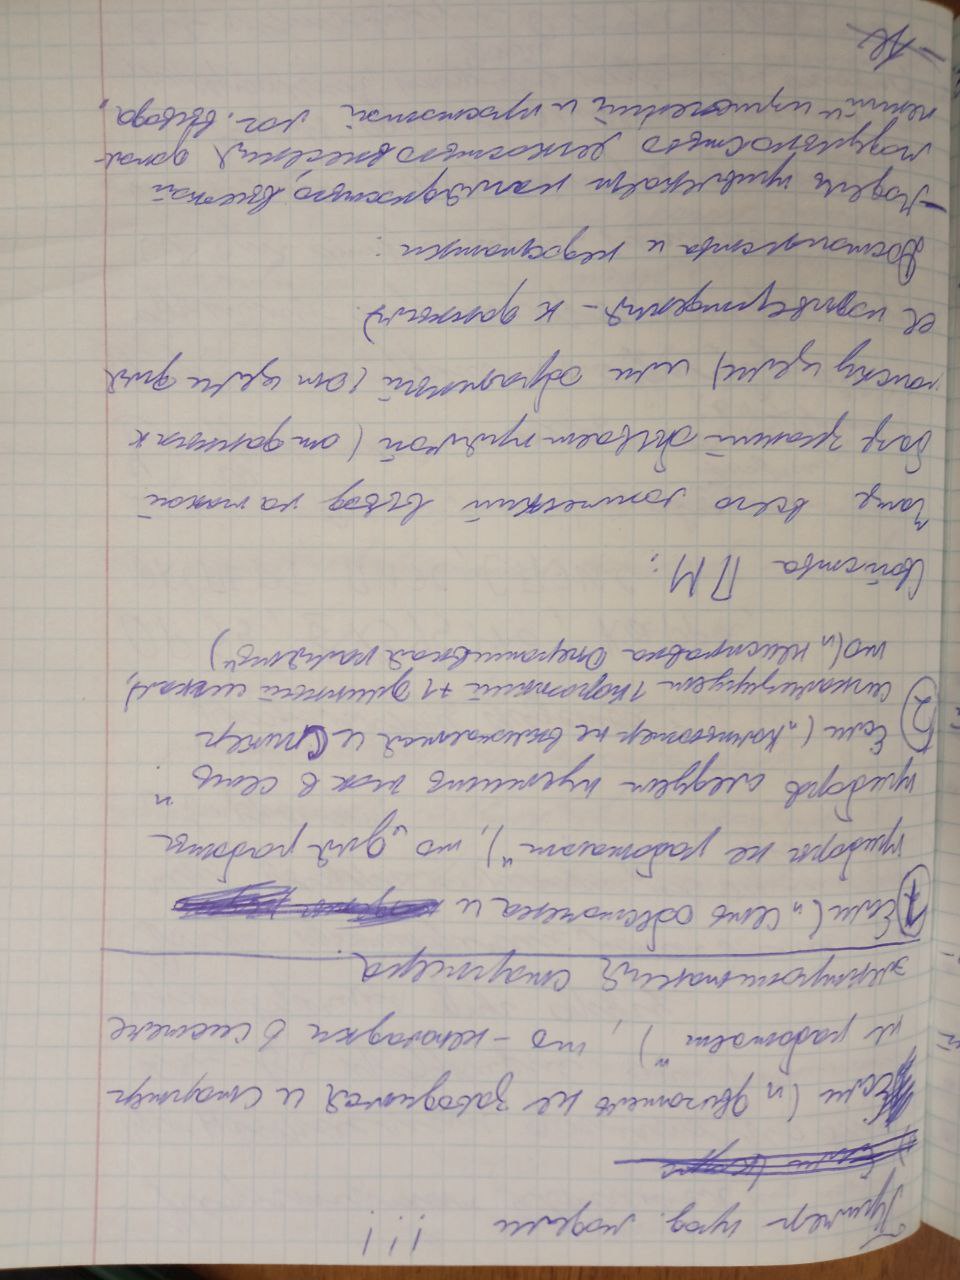 Пример прод. модели !!!
Если („ двигатель не заводится и стартер
не работает"), то - неполадки в системе
электропитания стартера.
1 Если („ сеть обесточена и
приборы не работают"), то „для работы
приборов следует пустить ток в сеть".
2 Если („Компьютер не включается и Спикер
сигнализирует 1 короткий +1 длинный сигнал),
то(„ неисправна Оперативная память")
Свойства ПМ:
Чаще всего логический вывод на такой
базе знаний бывает прямой (от данных к
поиску цели) или обратный (от цели для
её подтверждения - к данным).
Достоинства и недостатки:
- Модель привлекает наглядностью, высокой
модульностью легкостью внесения допол-
нений и изменений и простотой лог. вывода.